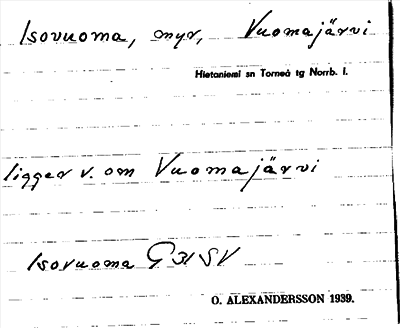 Isovuoma, myr, Vuomajärvi
Hietaniemi sn Torneå tg Norrb. l.
ligger v. om Vuomajärvi
Isovuoma G 31 SV
O. ALEXANDERSSON 1939.